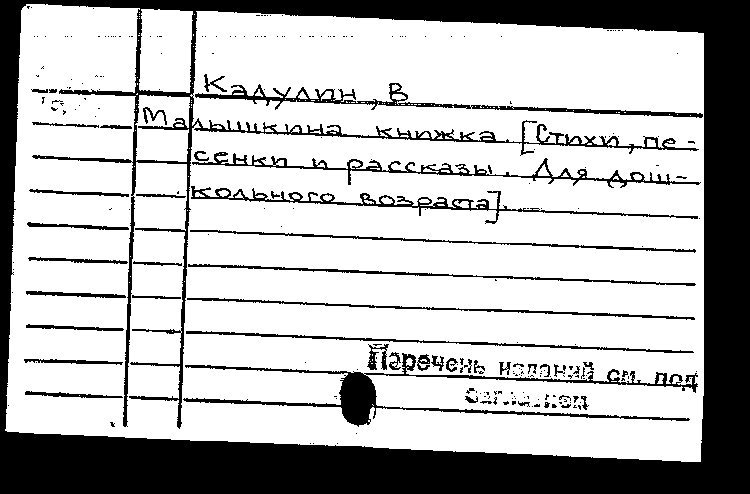 Кадулин, В
Малышкина книжка. [Стихи, пе-
сенки и рассказы. Для дош-
кольного возраста].
Перечень изданий см. под
заглавием